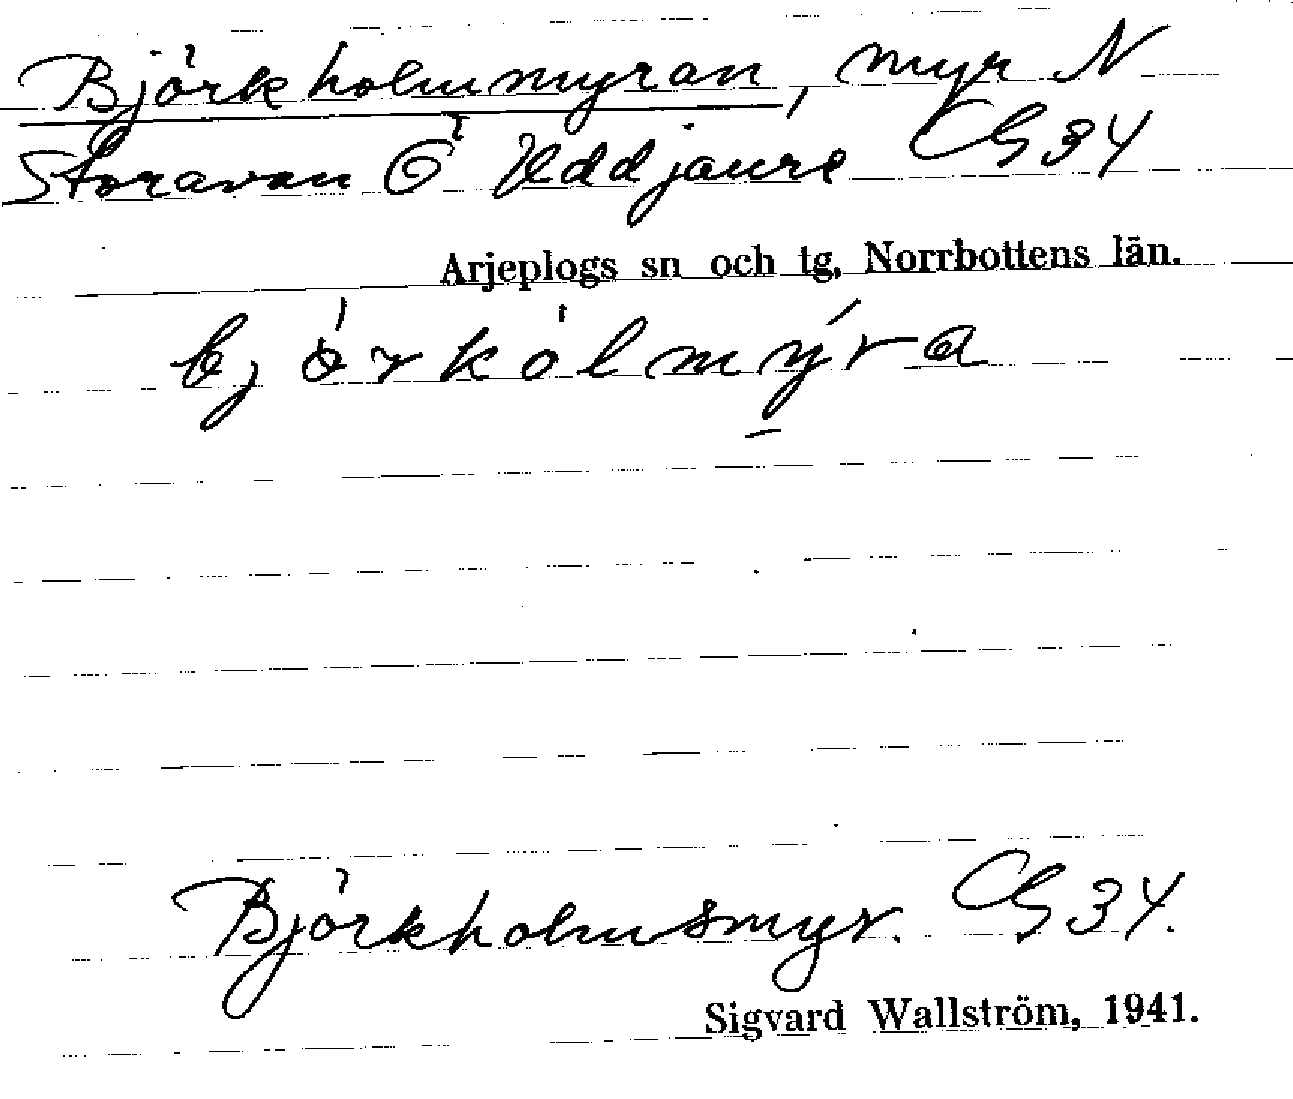 Björkholmmyran, myr N
Storavan Ö Uddjaure G 34
Arjeplogs sn och tg, Norrbottens län.
bjö́rkòlmýra
Björkholmsmyr. G 34.
Sigvard Wallström, 1941.